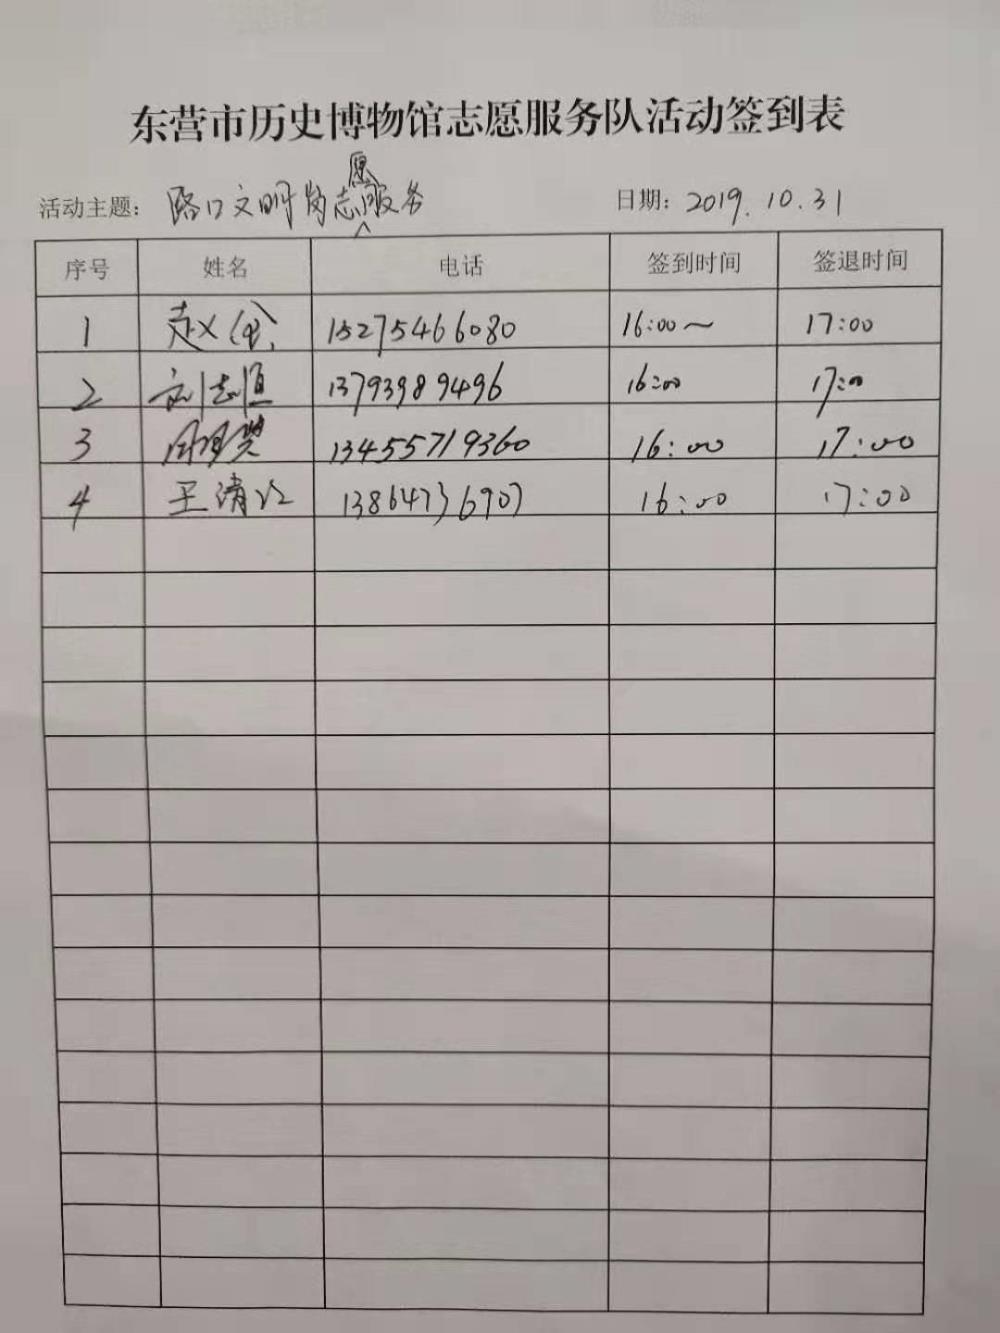 东营市历史博物馆志愿服务队活动签到表
活动主题： 路口文明岗志愿服务 日期：2019.10.31
序号 姓名 电话 签到时间 签退时间
1 赵 15275466080 16:00～ 17:00
2 刘志恒 13793989496 16:00 17:00
3 13455719360 16:00 17:00
4 王清 13864736907 16:00 17:00